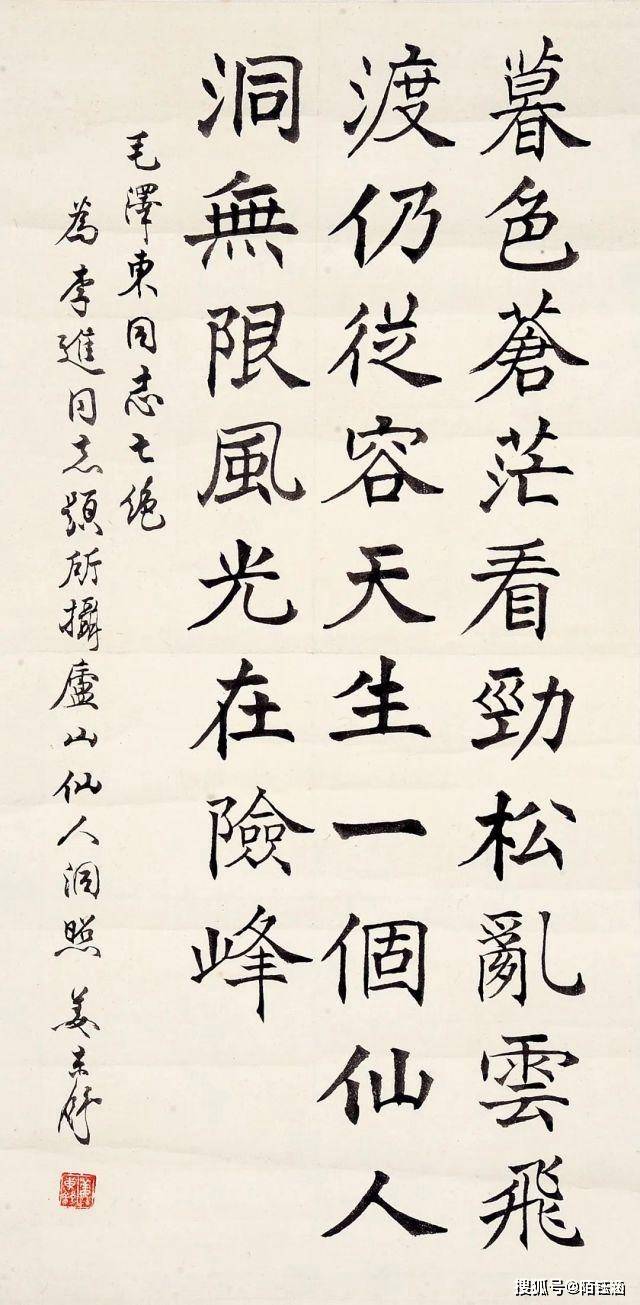 暮色蒼茫看勁松亂雲飛
渡仍從容天生一個仙人
洞無限風光在險峰
毛澤東同志七絶
為李進同志題所攝廬山仙人洞照 姜東舒
姜東舒
搜狐号@陌鈺涵